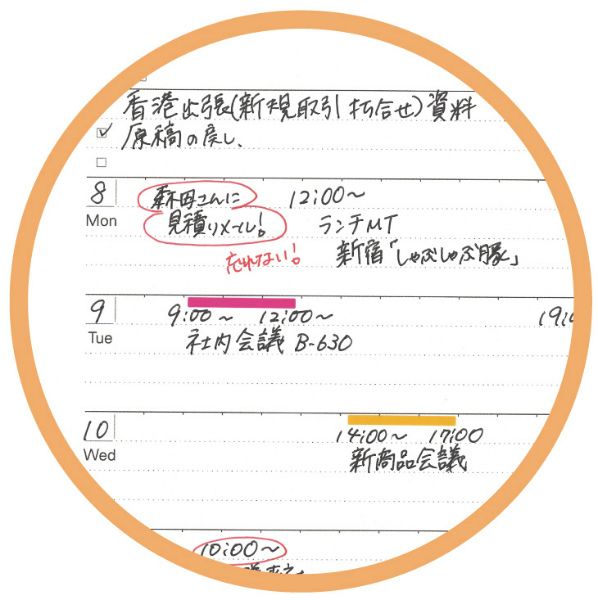 香港出張(新規取引打合せ)資料
原稿の戻し、
8 Mon
森田さんに
見積りメール!
忘れない!
12:00〜
ランチMT
新宿「しゃぶしゃぶ豚」
9 Tue
9:00〜 12:00〜
社内会議 B-630
19:
10 Wed
14:00〜 17:00
新商品会議
10:00〜